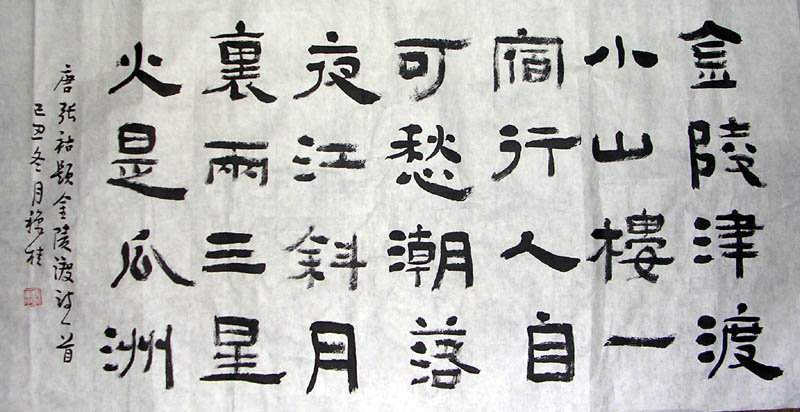 金陵津渡
小山樓一
宿行人自
可愁潮落
夜江斜月
裏兩三星
火是瓜洲
唐張祜題金陵渡詩一首
己丑冬月穆桂